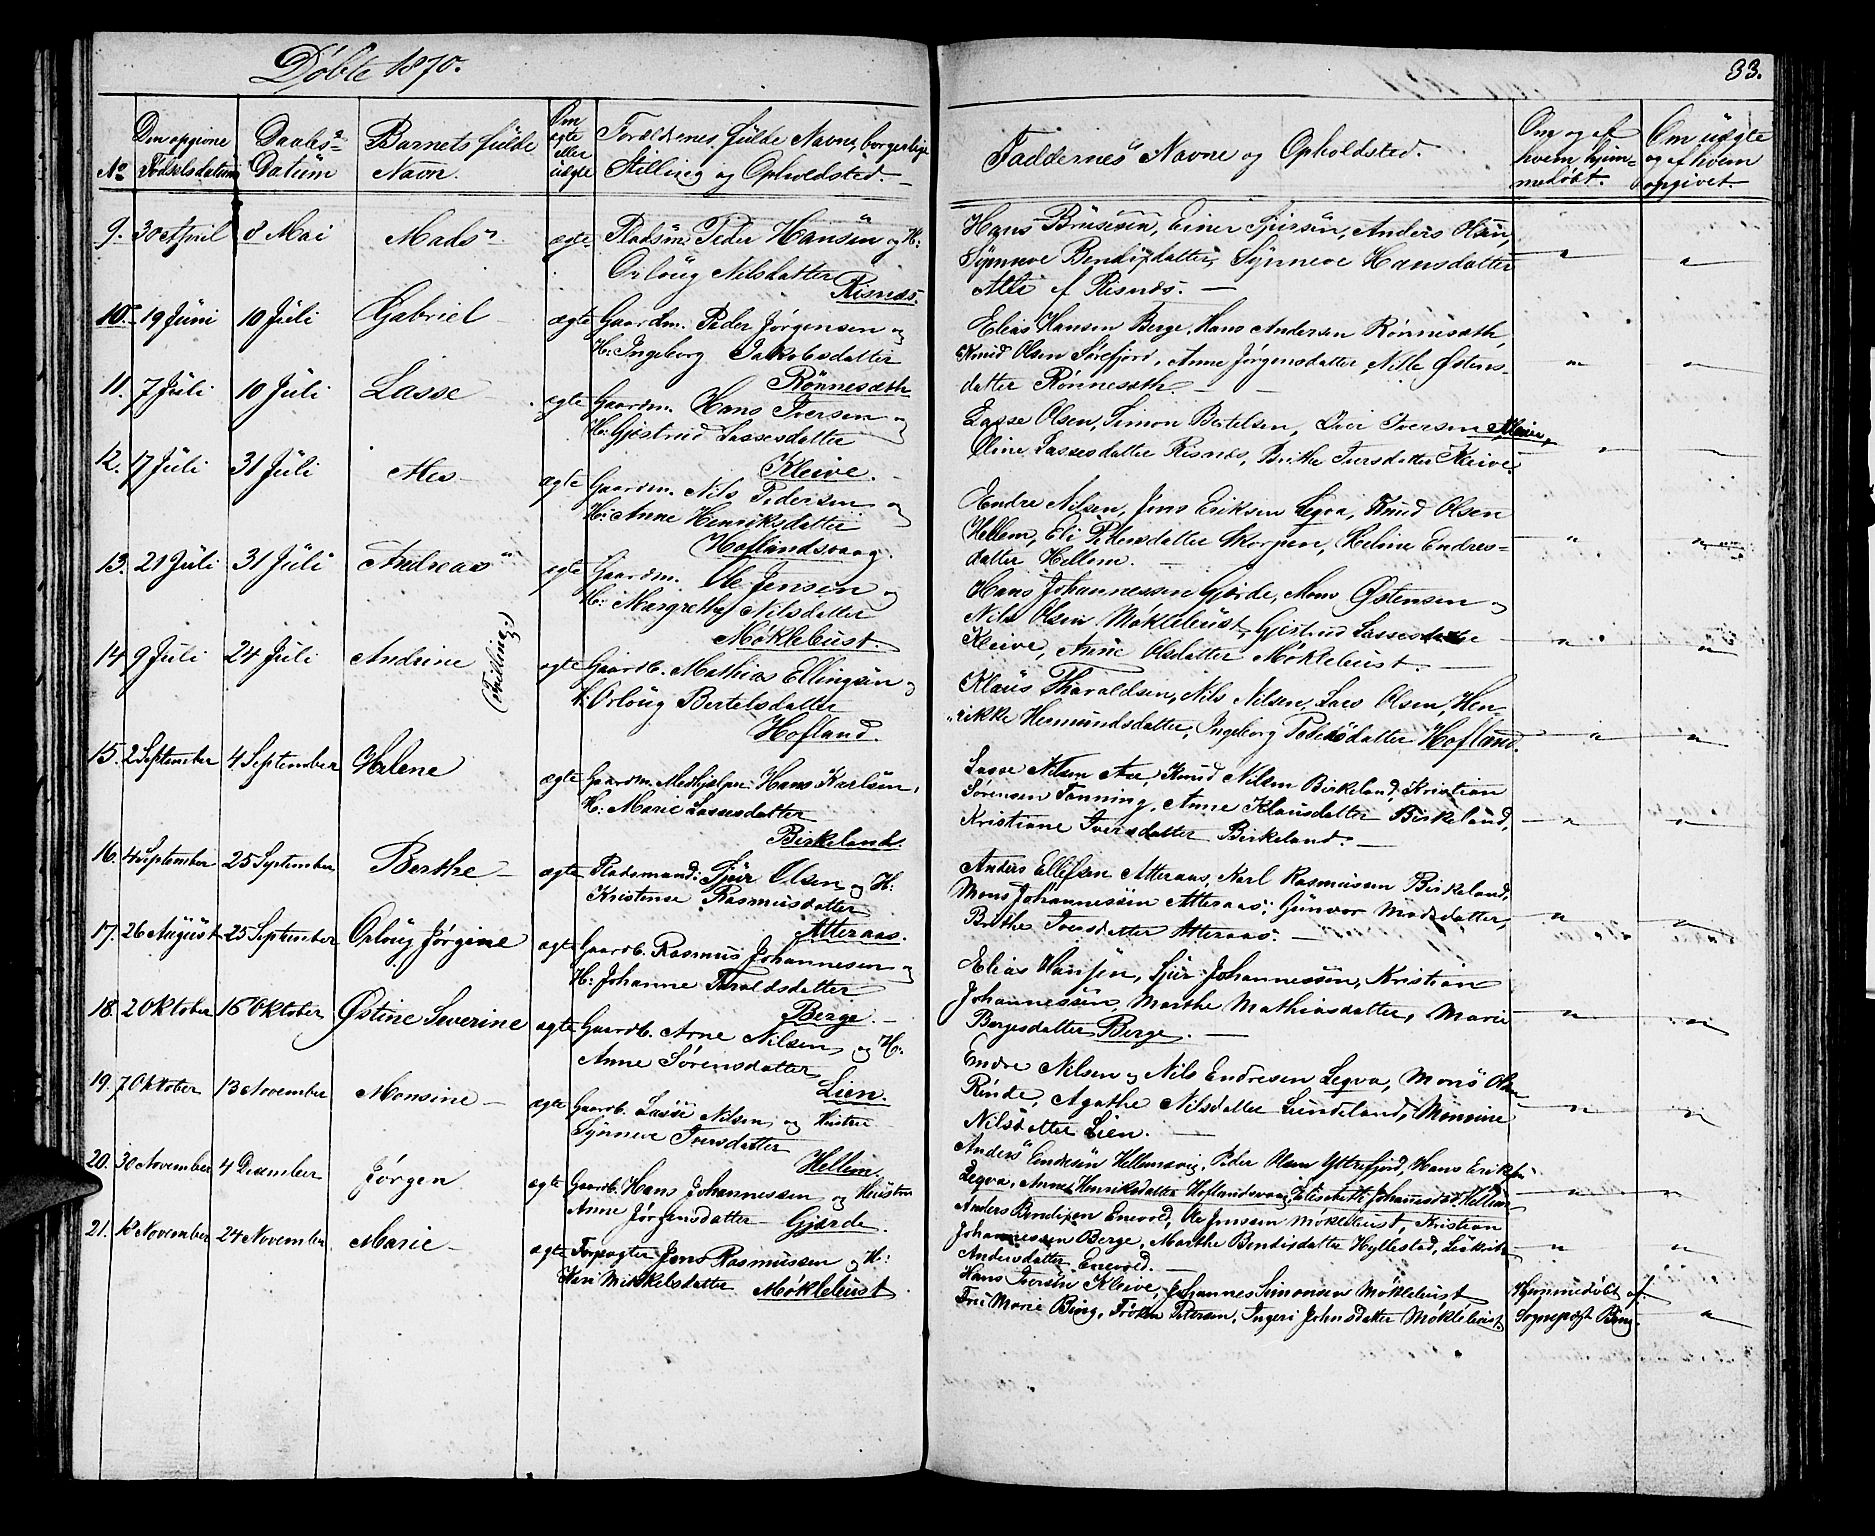 Døbte 1870.
33.
No
Den opgivne Fødselsdatum
Daabs- Datum
Barnets fulde Navn.
Om ægte eller uægte
Forældrenes fulde Navne, borgerlige Stilling og Opholdsted.
Faddernes Navne og Opholdsted.
Om og af hvem hjemmedøbt.
Om uægte og af hvem opgivet.
9. 30 April 8 Mai Mads ægte Pladsm. Peder Hansen og H:
Orloug Nilsdatter
Risnæs.
Hans Brusesen, Einer Sjursen, Anders Olsen,
Synneve Bendixdatter, Synneve Hansdatter
Alle af Risnæs.
10. 19 Juni 10 Juli Gabriel ægte Gaardm. Peder Jørgensen og
H: Ingeborg Jakobsdatter
Rønnesæth
Elias Hansen Berge, Hans Andersen Rønnesæth,
Knud Olsen Sørefjord, Anne Jørgensdatter, Nille Østens-
datter Rønnesæth.
11. 7 Juli 10 Juli Lasse ægte Gaardm. Hans Iversen og
H: Gjertrud Lassesdatter
Kleive.
Lasse Olsen, Simon Bertelsen, Iver Iversen Kleive,
Oline Lassesdatter Risnæs, Brithe Iversdatter Kleive.
12. 17 Juli 31 Juli Mes ægte Gaardm. Nils Pedersen og
H: Anne Henriksdatter
Hoflandsvaag.
Endre Nilsen, Jens Eriksen Leqva, Knud Olsen
Hellem, Eli Pedersdatter Skorpen, Heline Endres-
datter Hellem.
13. 21 Juli 31 Juli Andreas ægte Gaardm. Ole Jensen og
H: Margrethe Nilsdatter
Møklebust.
Hans Johannessen Gjerde, Mons Østensen og
Nils Olsen Møklebust, Gjertrud Lassesdatter
Kleive, Anne Olsdatter Møklebust.
14. 9 Juli 24 Juli Andrine (Tvilling.) ægte Gaardb. Mathias Ellingsen og
H. Orloug Bertelsdatter
Hofland.
Klaus Tharaldsen, Nils Nilsen, Lars Olsen, Hen-
rikke Hermundsdatter, Ingeborg Pedersdatter Hofland.
15. 2 September 4 September Helene ægte Gaardm. Medhjelper Hans Karlsen,
H: Marie Lassesdatter
Birkeland.
Lasse Nilsen Aae, Knud Nilsen Birkeland, Kristian
Sørensen Tønning, Anne Klausdatter Birkeland,
Kristiane Iversdatter Birkeland.
16. 4 September 25 September Berthe ægte Pladsmand: Sjur Olsen og H:
Kristense Rasmusdatter
Atteraas.
Anders Ellefsen Atteraas, Karl Rasmussen Birkeland,
Mons Johannessen Atteraas, Gunvor Madsdatter,
Brithe Iversdatter Atteraas.
17. 26 August 25 September Orloug Jørgine ægte Gaardb. Rasmus Johannesen og
H: Johanne Taroldsdatter
Berge.
Elias Hansen, Sjur Johannessen, Kristian
Johannessen, Marthe Mathiasdatter, Marie
Børgesdatter Berge.
18. 2 Oktober 16 Oktober Østine Severine ægte Gaardb. Arne Nilsen og H:
Anne Sørensdatter
Lien.
Endre Nilsen og Nils Endresen Leqva, Mons Olsen
Rinde, Agathe Nilsdatter Lundeland, Monsine
Nilsdatter Lien.
19. 7 Oktober 13 November Monsine ægte Gaardb. Lasse Nilsen og Hustru
Synneve Iversdatter
Hellem.
Anders Endresen Hellemsvig, Peder Olsen Yttrefjord, Hans Eriksen
Leqva, Anne Henriksdatter Hoflandsvaag, Elisabeth Johannesdtr. Hellem.
20. 30 November 4 Desember Jørgen ægte Gaardb. Hans Johannessen og Hustru
Anne Jørgensdatter Gjerde.
Anders Bendixen Enevold, Ole Jenssen Møklebust, Kristian
Johannessen Berge, Marthe Bendixdatter Hyllestad,
Andersdatter Enevold.
21. 18 November 24 November Marie ægte Forpagter Jens Rasmussen og H:
Kari Mikkelsdatter Møklebust.
Hans Iversen Kleive, Johannes Simonsen Møklebust
Fru Marie Bing, Frøken Petersen, Ingeri Johnsdatter Møklebust.
Hjemmedøbt af
Sognepræst Bing.